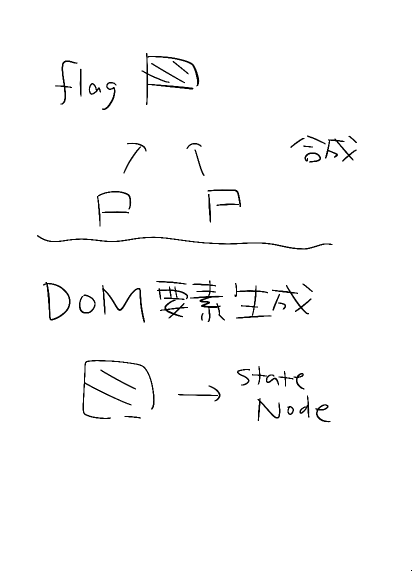 flag
合成
DOM要素生成
State
Node